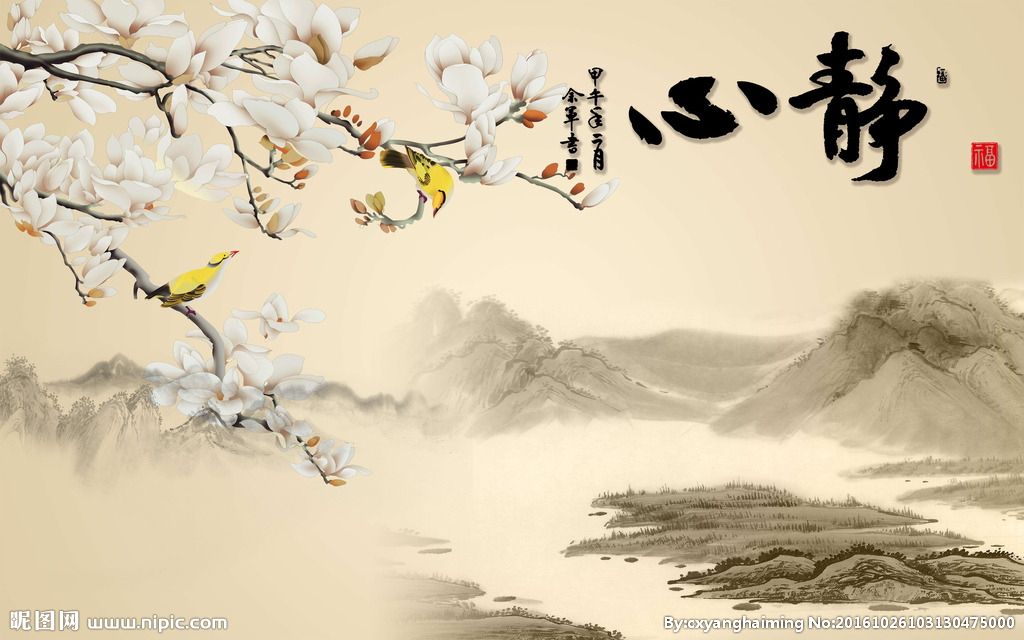 静心
甲午年二月
余军书
福
昵图网 www.nipic.com
By:cxyanghaiming No:20161026103130475000